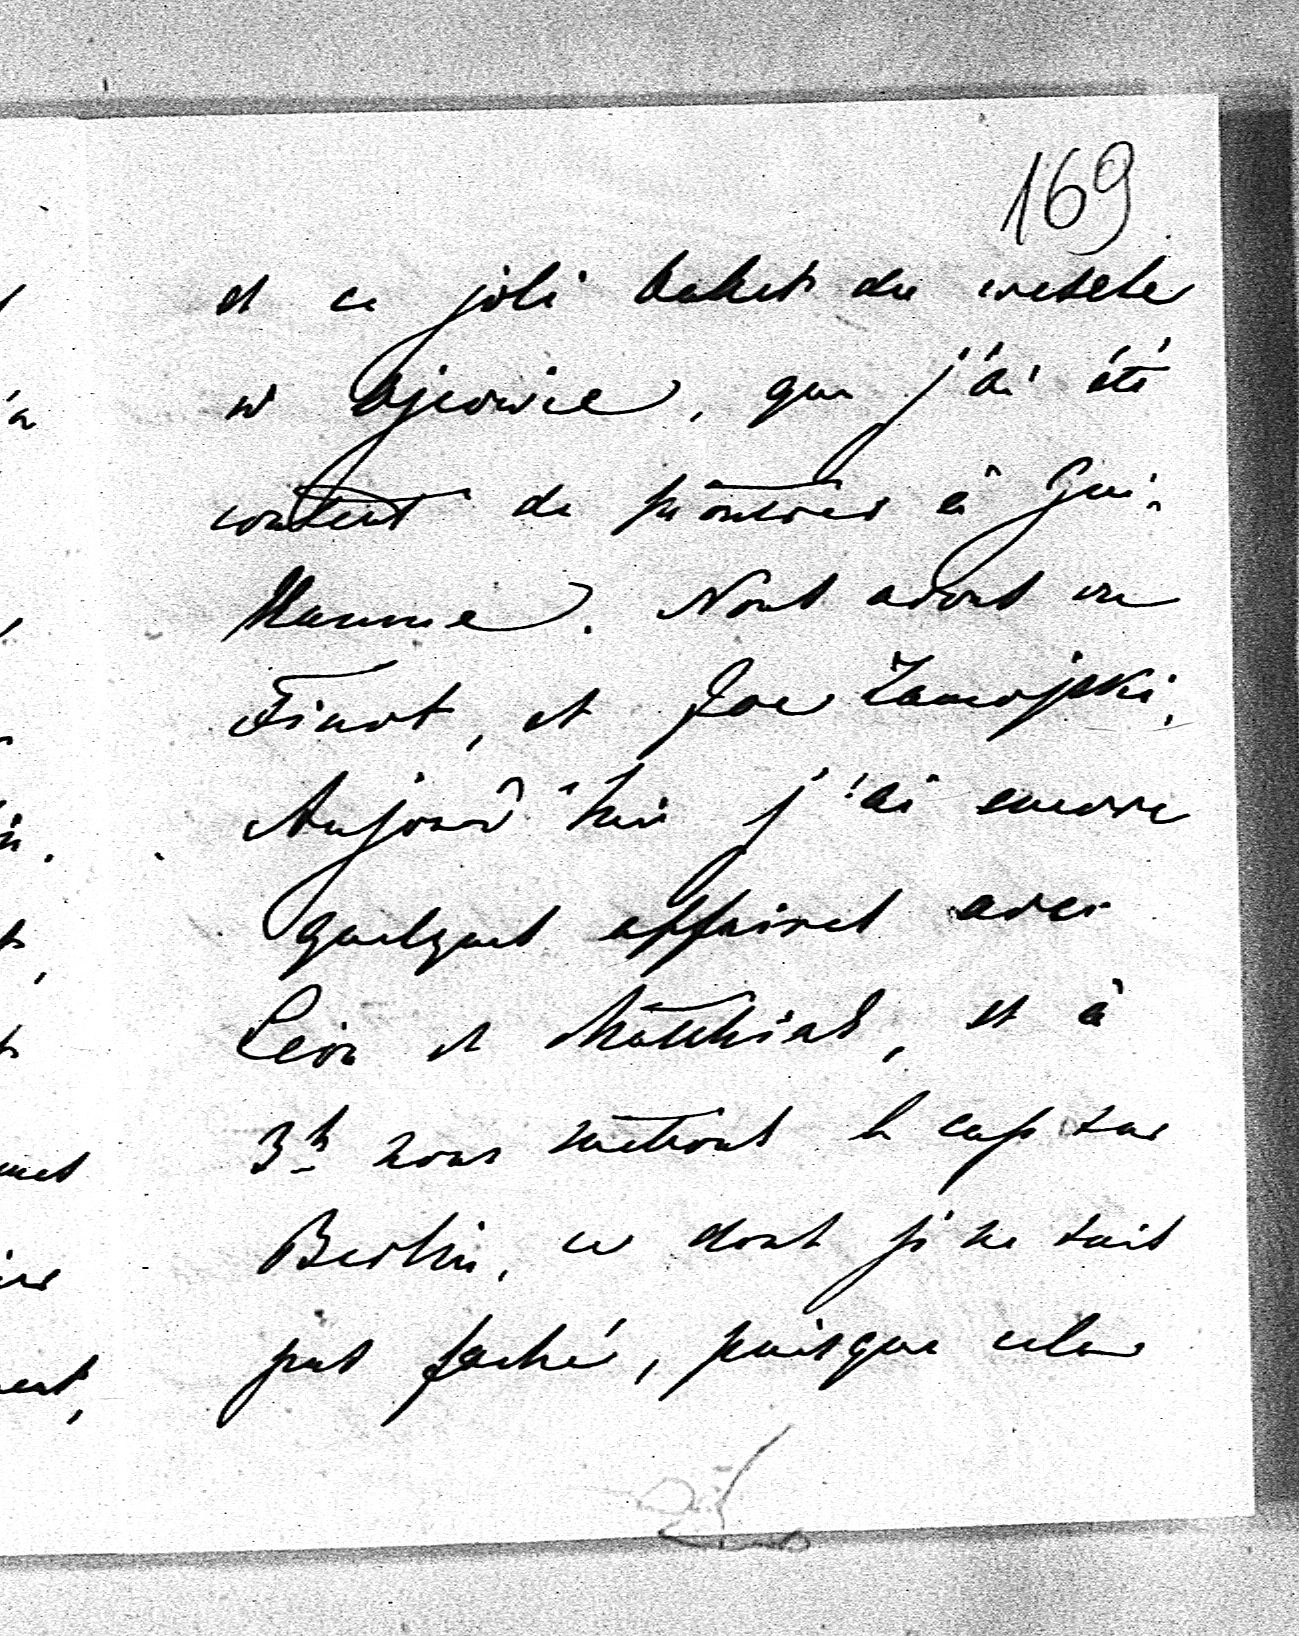 169
et ce joli balet du wesele
w Ojcowie, que j'ai été
content de montrer à Gui-
llaume. Nous avons vu
Finot, et Joe Zamojski.
Aujourd'hui j'ai encore
quelques affaires avec
Léon et Matthias, et à
3h nous mettons le cap sur
Berlin, ce dont je ne suis
pas faché, puisque cela